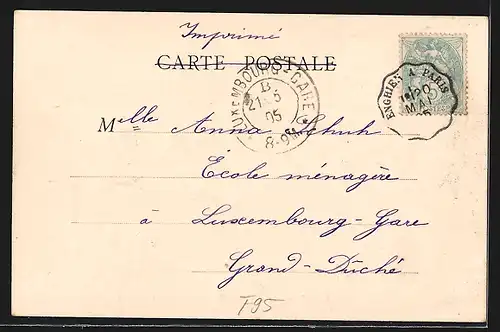 Imprimé
CARTE POSTALE
LUXEMBOURG-GARE
B
21-5
05
8-9M
ENGHIEN A PARIS
20
MAI
05
Mlle Anna Schuh
École ménagère
à Luxembourg-Gare
Grand-Duché
F95